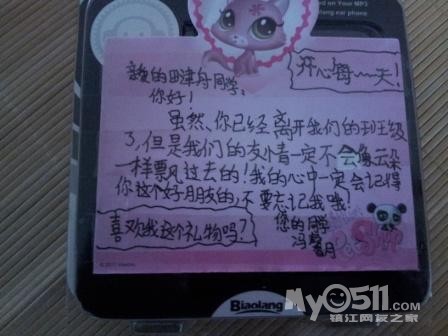 d on Your MP3
long ear phone
亲爱的田津舟同学：
开心每一天！
你好！
虽然、你已经离开我们的班级
了,但是我们的友情一定不会像云朵
一样票风过去的！我的心中一定会记得
你这个好朋友的,不要忘记我哦！
喜欢我这个礼物吗？
您的同学
冯
月
Biaolang
My0511.com
镇江网友之家